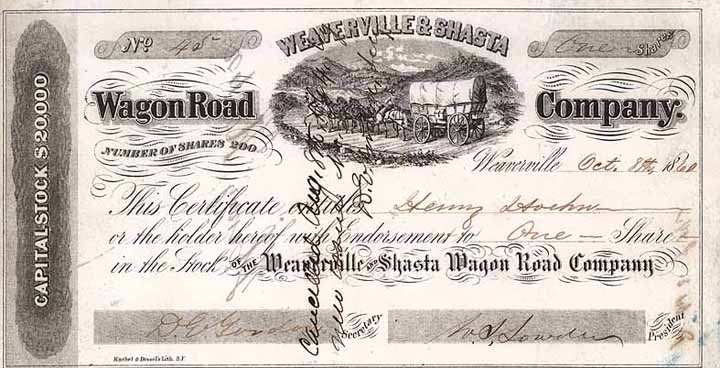 No 45
WEAVERVILLE & SHASTA
One Shares
Wagon Road Company.
NUMBER OF SHARES 200
CAPITAL STOCK $20,000
Weaverville Oct. 8th, 1860
This Certificate Entitles Henry
or the holder hereof with Endorsement to One Share
in the Stock OF THE Weaverville and Shasta Wagon Road Company
Secretary
W. S. Lowden
President
Kuchel & Dresel's Lith. S.F.
Cancelled Aug. 8th
new issued